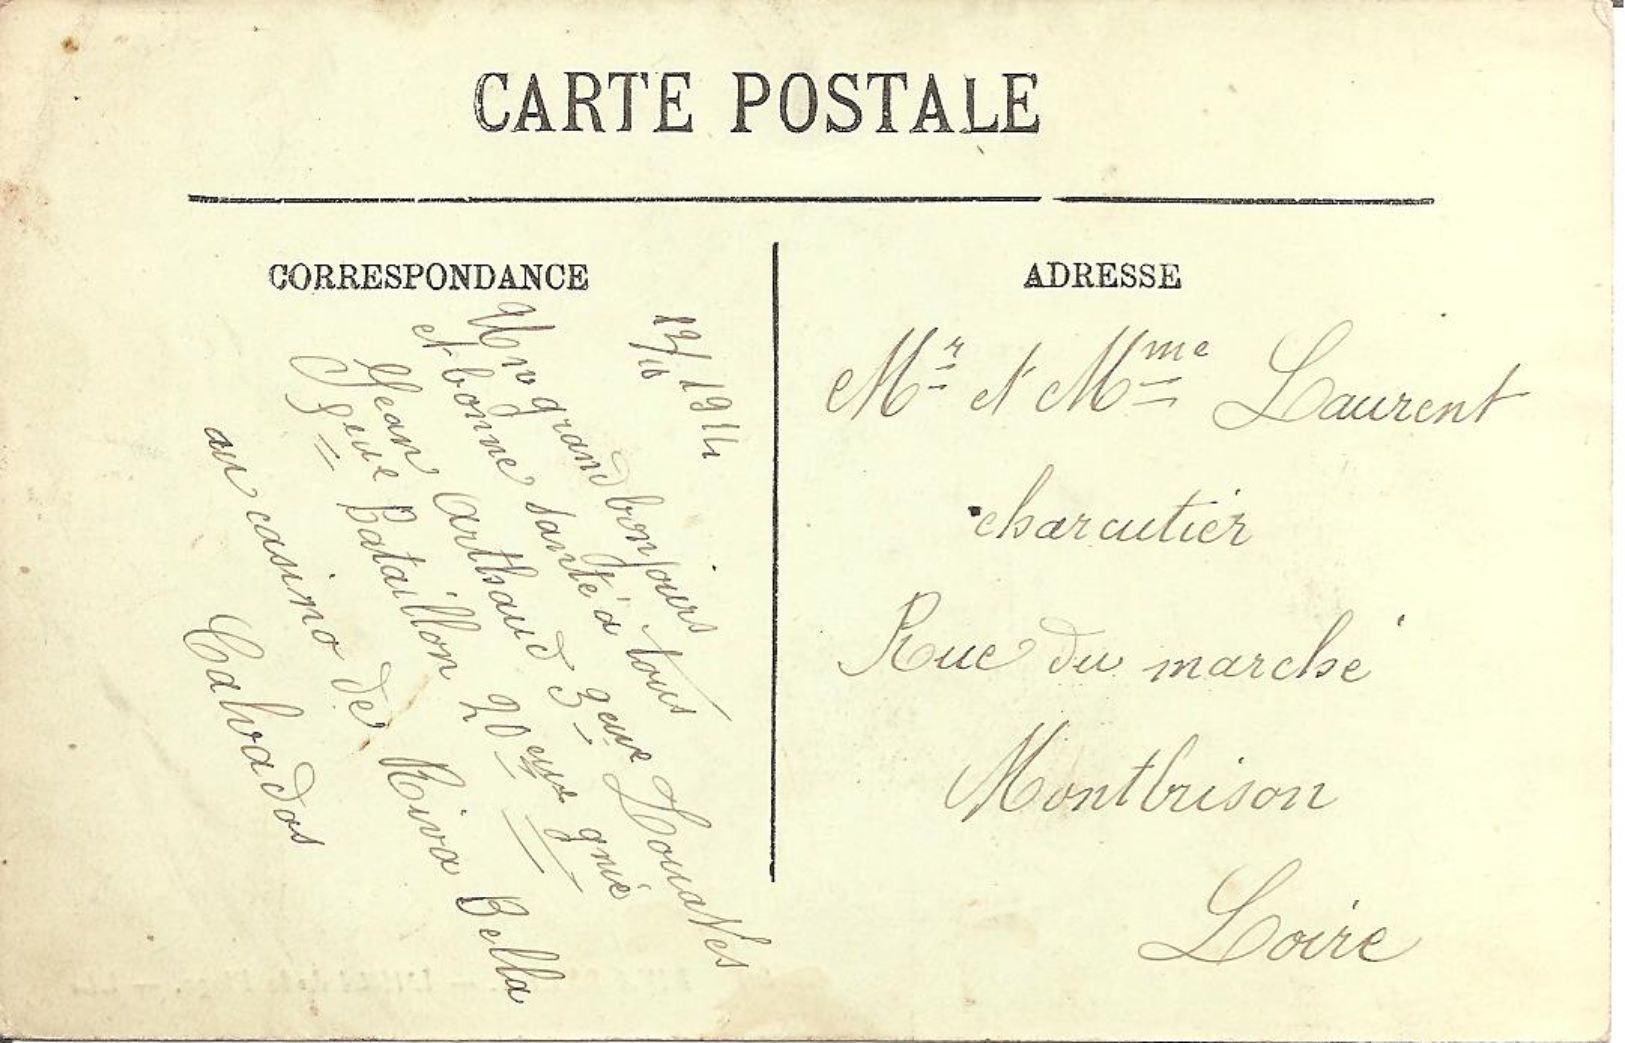 CARTE POSTALE
CORRESPONDANCE
12/10 1914
Un grand bonjours
et bonne santé à tous
Jean Arthaud 3eme Zouaves
5eme Bataillon 20eme gnie
au casino de Riva Bella
Calvados
ADRESSE
Mr et Mme Laurent
charcutier
Rue du marché
Montbrison
Loire